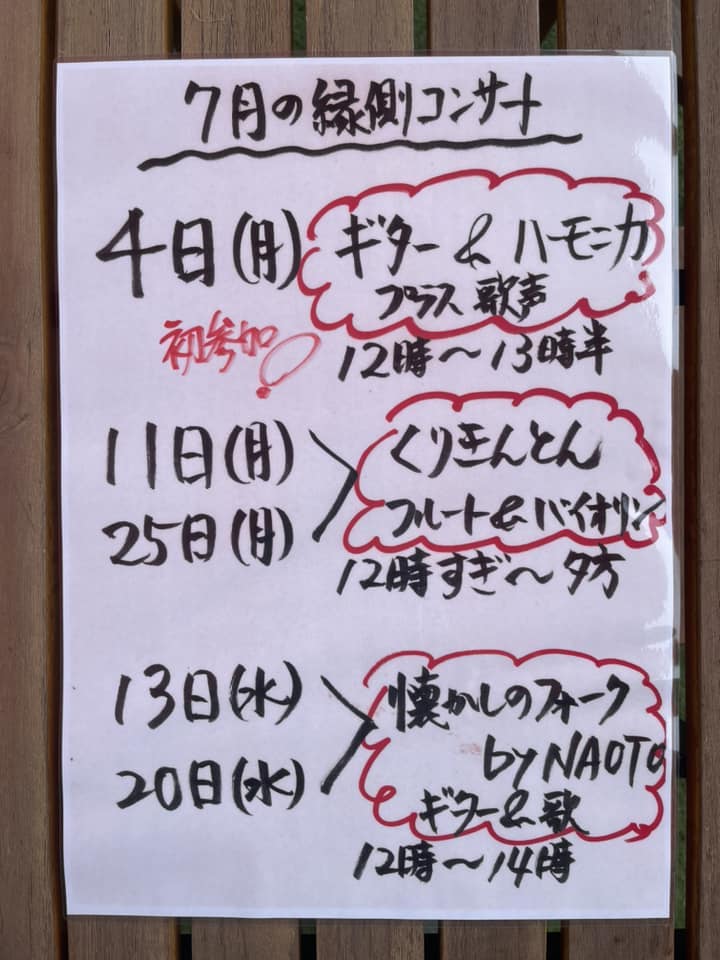 7月の縁側コンサート
4日(月)
ギター & ハーモニカ
プラス 歌声
初参加!
12時〜13時半
11日(月)
25日(月)
くりきんとん
フルート&バイオリン
12時すぎ〜夕方
13日(水)
20日(水)
懐かしのフォーク
by NAOTO
ギター&歌
12時〜14時